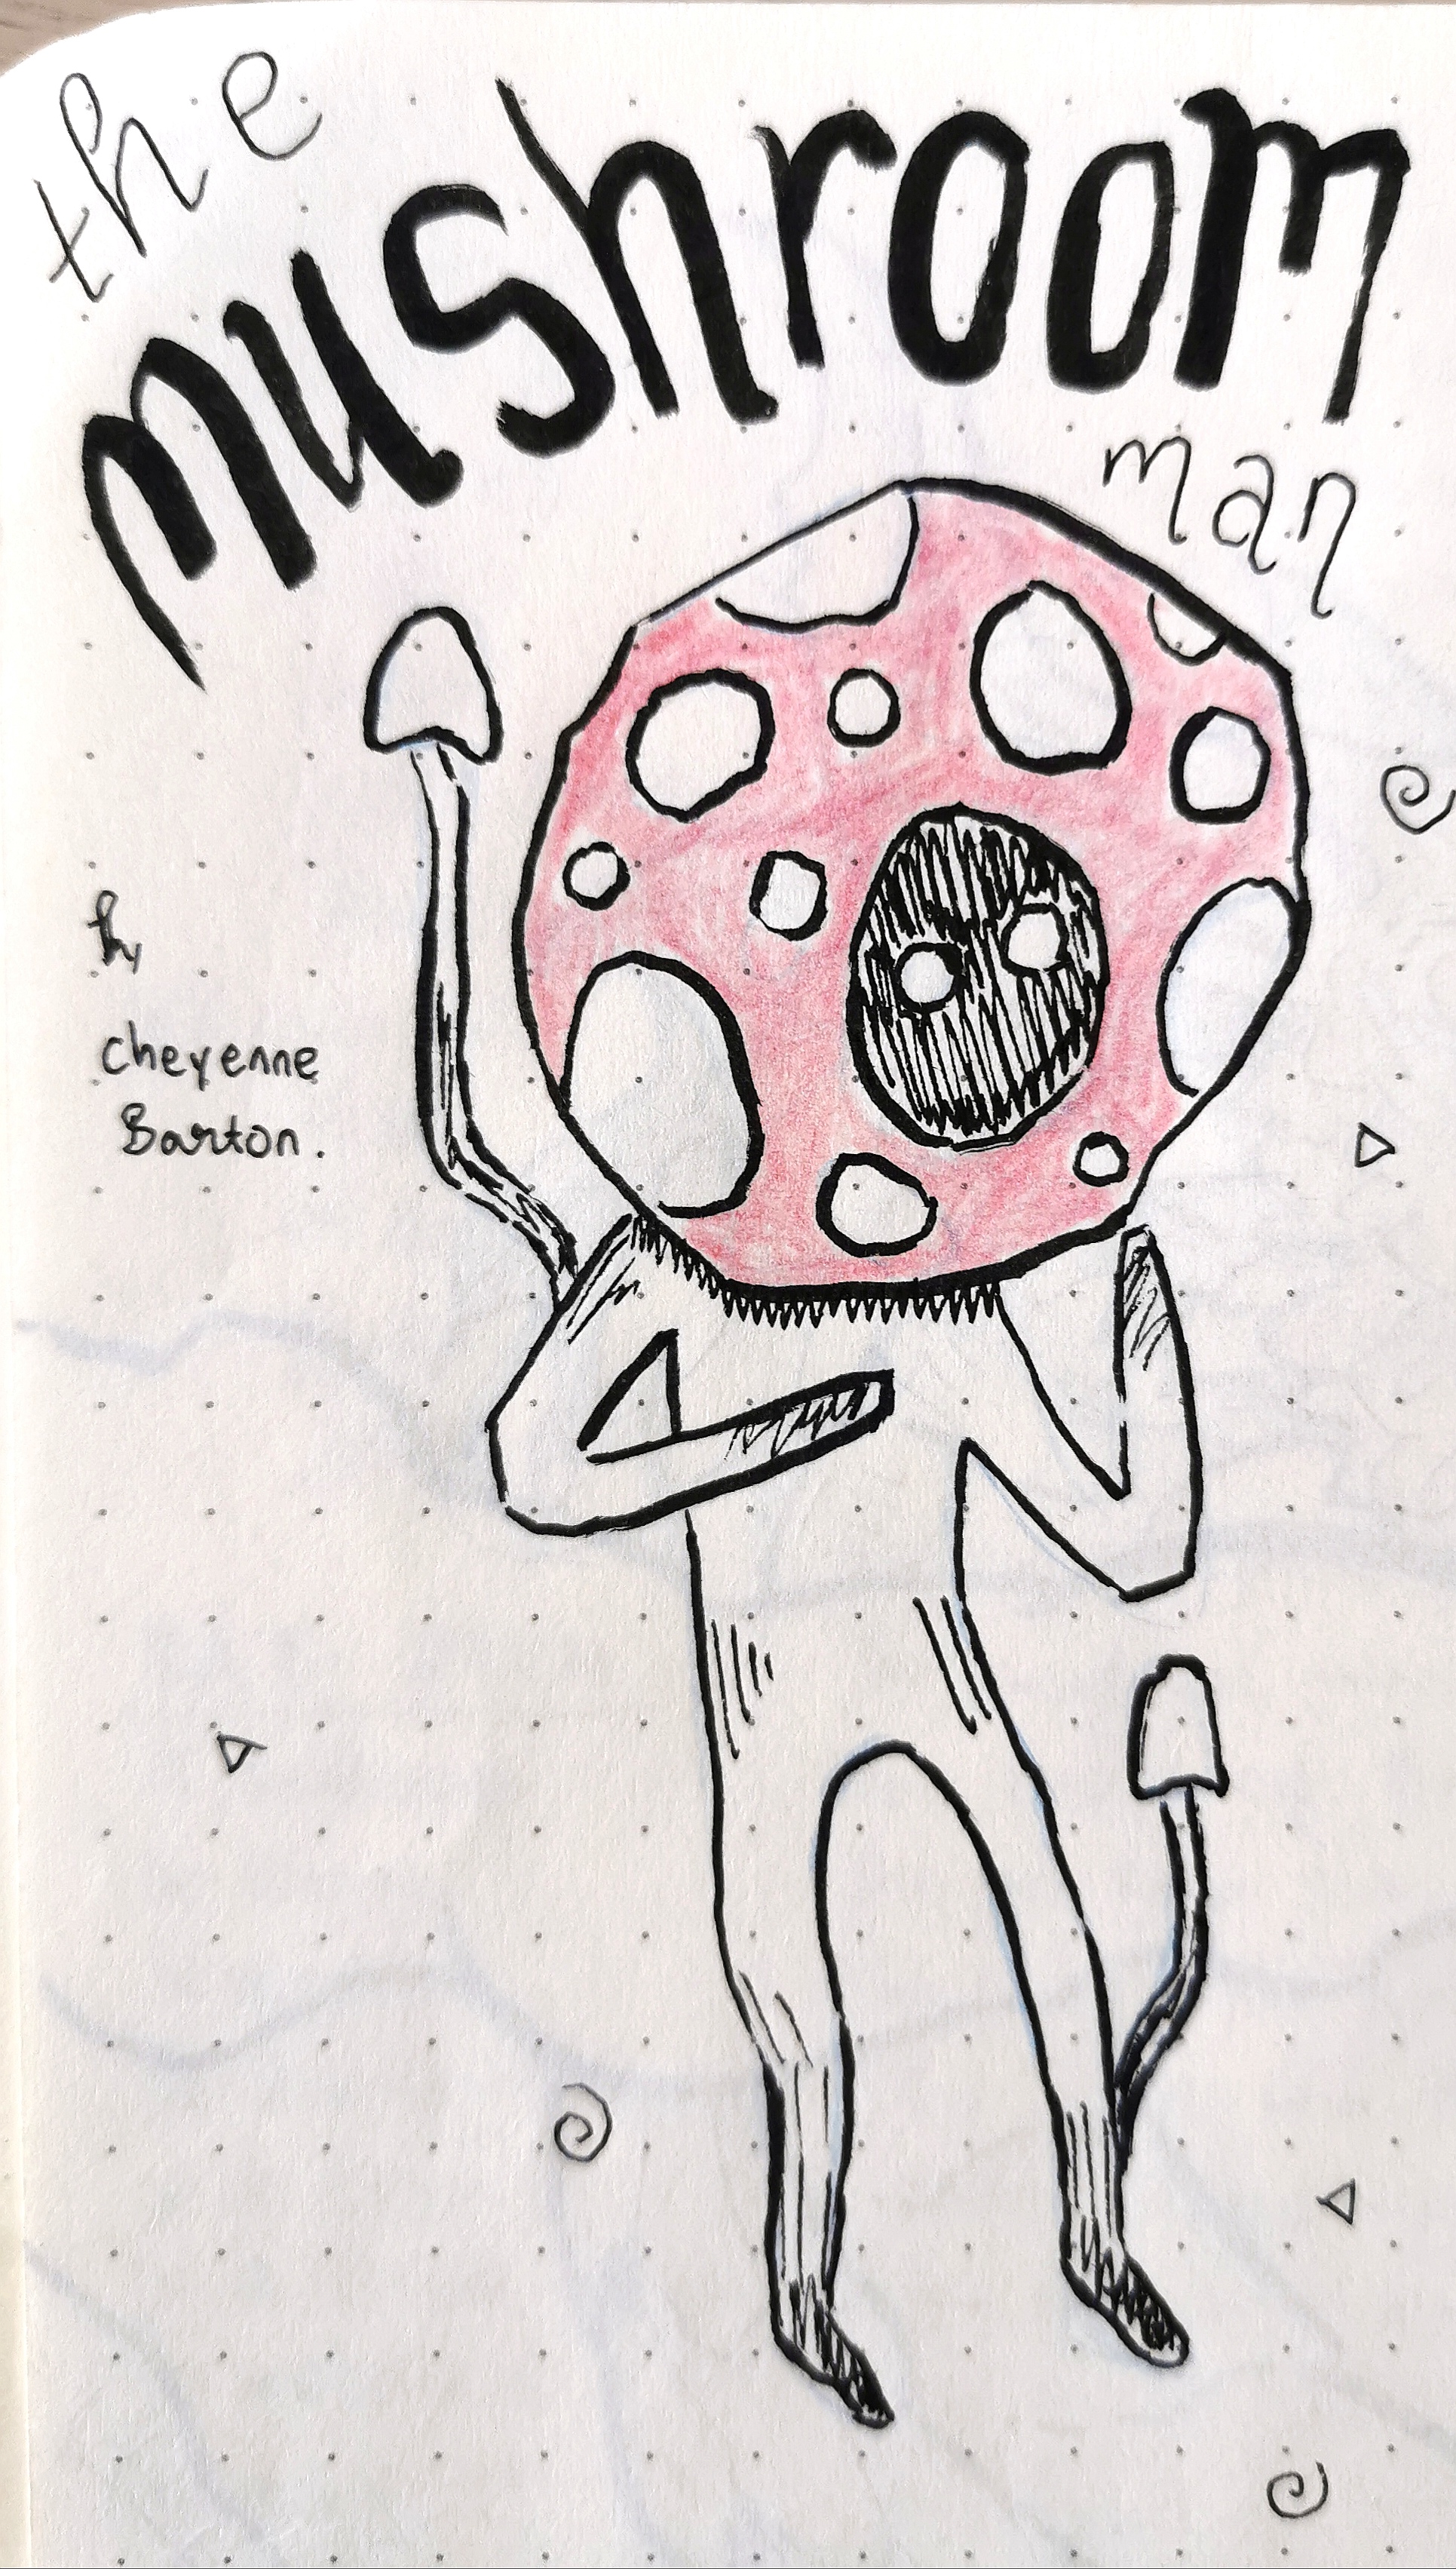 the
mushroom
man
by
Cheyenne
Barton.